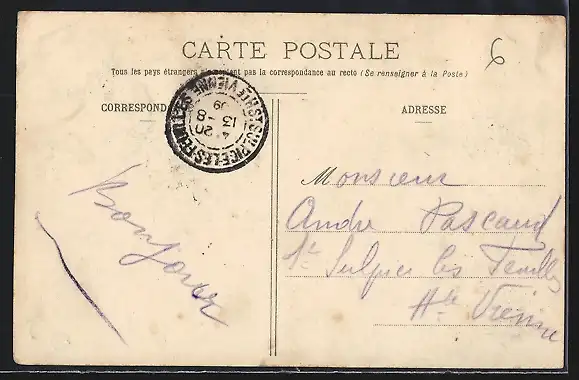 CARTE POSTALE
6
Tous les pays étrangers n'acceptent pas la correspondance au recto (Se renseigner à la Poste)
CORRESPOND
ADRESSE
ST SULPICE LES FEUILLES HTE VIENNE
4 20
13 - 8
09
Bonjour
Monsieur
André Pascaud
St Sulpice les Feuilles
Hte Vienne